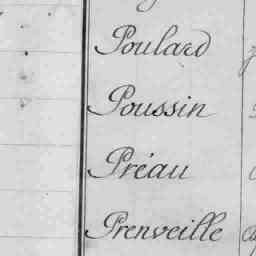 Poulard
Poussin
Préau
Prenveille